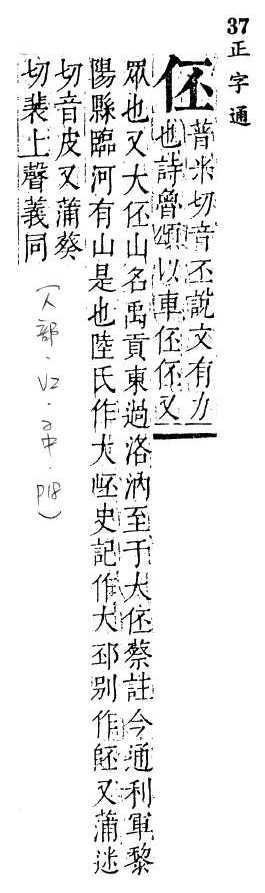 37 正字通
伾
普米切音丕說文有力
也詩魯頌以車伾伾又
眾也又大伾山名禹貢東過洛汭至于大伾蔡註今通利軍黎
陽縣臨河有山是也陸氏作大岯史記作大邳別作又蒲迷
切音皮又蒲癸
切裴上聲義同
(人部.V2.子中.P18)